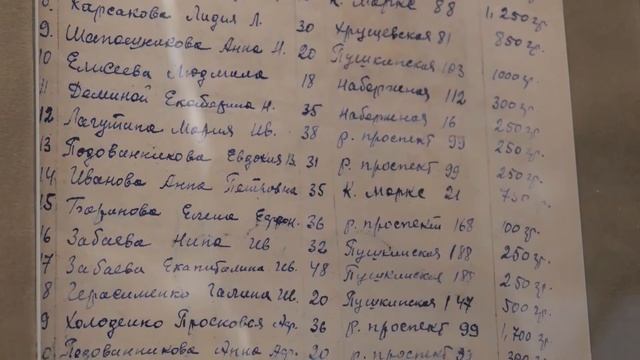 8. Карсакова Лидия Л. 30 К. Маркс 88 1,250 гр.
9. Шапошникова Анна И. 20 Хрущевская 81 850 гр.
10 Елисеева Людмила 18 Пушкинская 103 1000 гр.
11 Деминой Екатерина Н. 35 Набережная 112 300 гр.
12 Лагутина Мария Ив. 38 Набережная 16 250 гр.
13 Подованникова Евдокия В. 31 р. проспект 99 250 гр.
14 Иванова Анна Петровна 35 р. проспект 99 250 гр.
15 Баринова Елена 36 К. Маркс 21 750
16 Забаева Нина Ив. 32 р. проспект 168 100 гр.
17 Забаева Екапиталина Ив. 48 Пушкинская 188 250 гр.
8 Герасименко Галина Ив. 20 Пушкинская 185 250 гр.
9 Холоденко Просковья 36 Пушкинская 147 500 гр.
Подованникова Анна 20 р. проспект 99 1,700 гр.
р. проспект